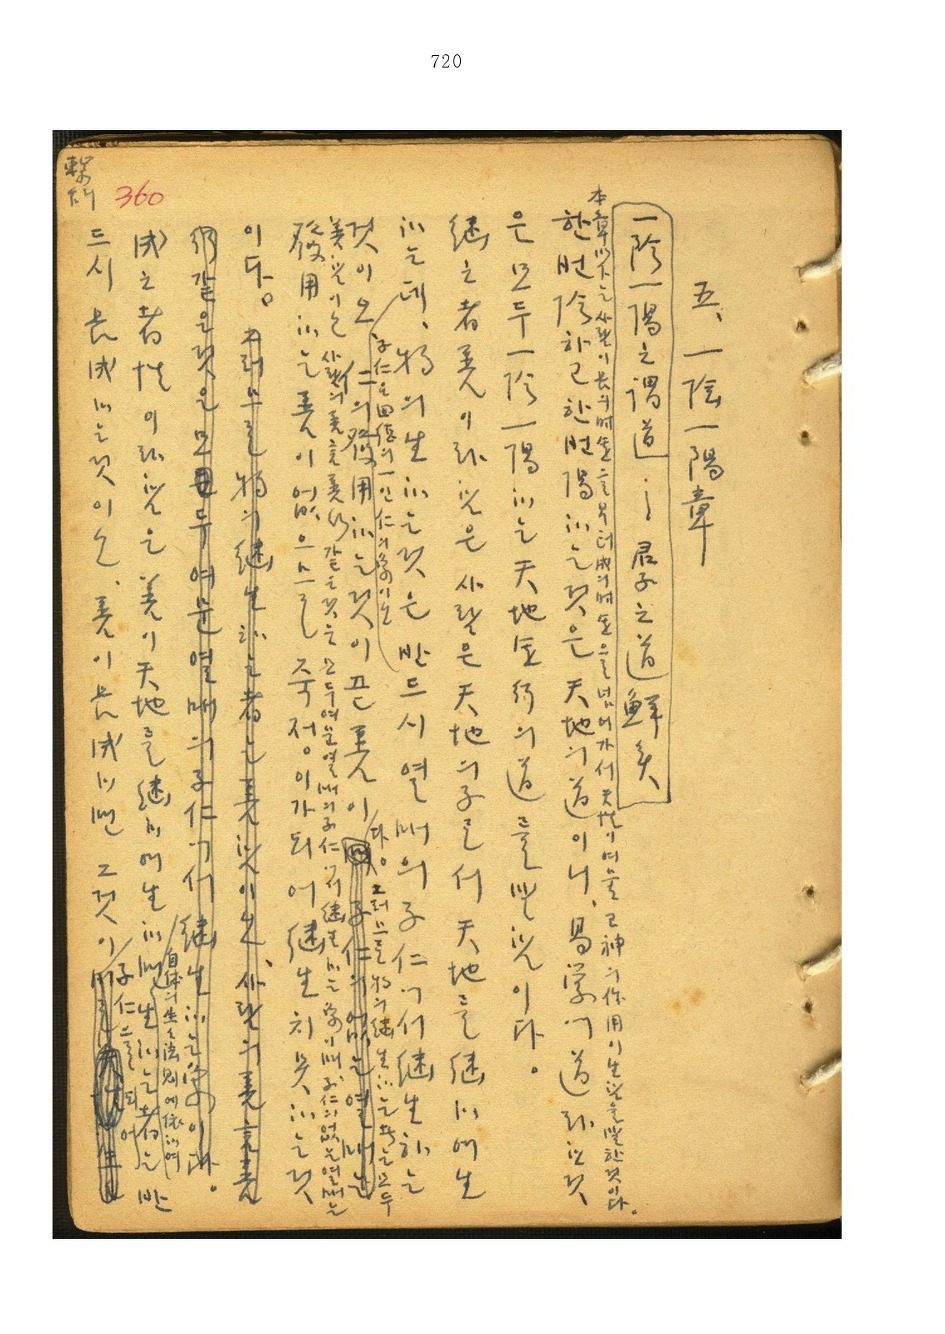 720
繫辭
360
五、一陰一陽章
一陰一陽之謂道 … 君子之道鮮矣
本章以下는 사람이 長의 時運으로부터 成의 時運으로 넘어가서 天性이 여물고 神의 作用이 生함을 말한 것이다。
한번 陰하고 한번 陽하는 것은 天地의 道이니、易學에서 道라 한 것
은 모두 一陰一陽하는 天地運行의 道를 말함이다。
繼之者善이라 함은 사람은 天地의 子로서 天地를 繼하여 生
하는데、物의 生하는 것은 반드시 열매의 子仁에서 繼生하는
子仁은 四德의 一인 仁의 象이오
것이오 仁의 發用하는 것이 곧 善이다。그러므로 物의 繼生하는 者는 모두
善함이오 사람의 善言善行같은 것은 모두 여문열매의 子仁에서 繼生하는 象이며 子仁의 없는 열매는
發用하는 善이 없으므로 죽정이가 되어 繼生치 못하는 것
이다。그러므로 物의 繼生하는 者는 善함이오、사람의 善言善
行같은 것은 모두 여문열매의 子仁에서 繼生하는 象이다。
成之者性이라 함은 善이 天地를 繼하여 生하며 生하는 者는 반
自體의 生生法則에 依하여
드시 長成하는 것이오、善이 長成하면 그것이
子仁으로 되어